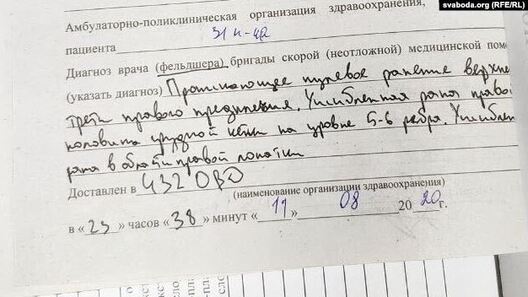 svaboda.org (RFE/RL)
Амбулаторно-поликлиническая организация здравоохранения,
пациента
Диагноз врача (фельдшера) бригады скорой (неотложной) медицинской пом
(указать диагноз) Проникающее пулевое ранение верхне
трети правого предплечия. Ушибленная рана право
половины грудной клетки на уровне 5-6 ребра. Ушиблен
рана в области правой лопатки
Доставлен в 432 ОВД
(наименование организации здравоохранения)
в «23» часов «38» минут «11» 08 2020г.